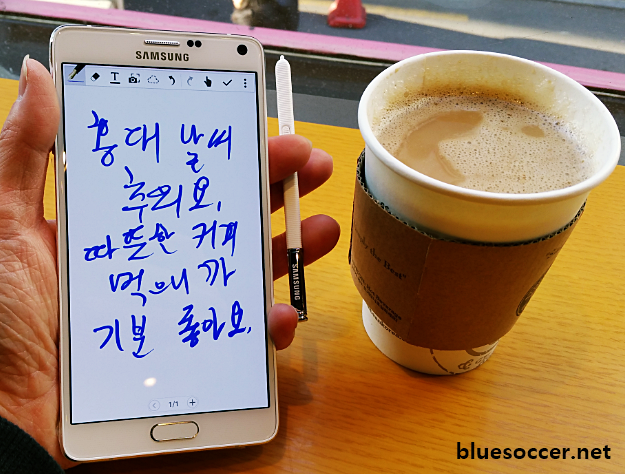 SAMSUNG
홍대 날씨
추의요.
따뜻한 커피
먹으니까
기분 좋아요.
1/1
SAMSUNG
bluesoccer.net